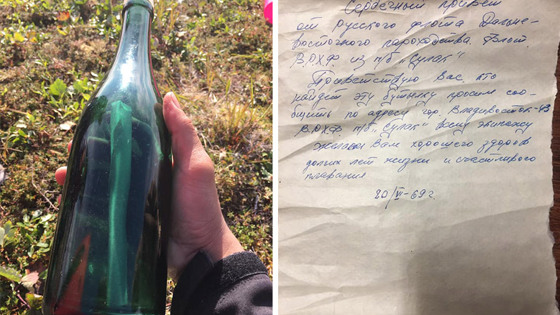 Сердечный привет
от русского флота Дальне-
восточного пароходства. Флот.
ВРХФ из п/б "Сулак"
Приветствую Вас, кто
найдет эту бутылку просим соо-
бщить по адресу гор. Владивосток-43
ВРХФ п/б "Сулак" всему экипажу
Желаем Вам хорошего здоров
долгих лет жизни и счастливого
плавания
20/VI-69 г.